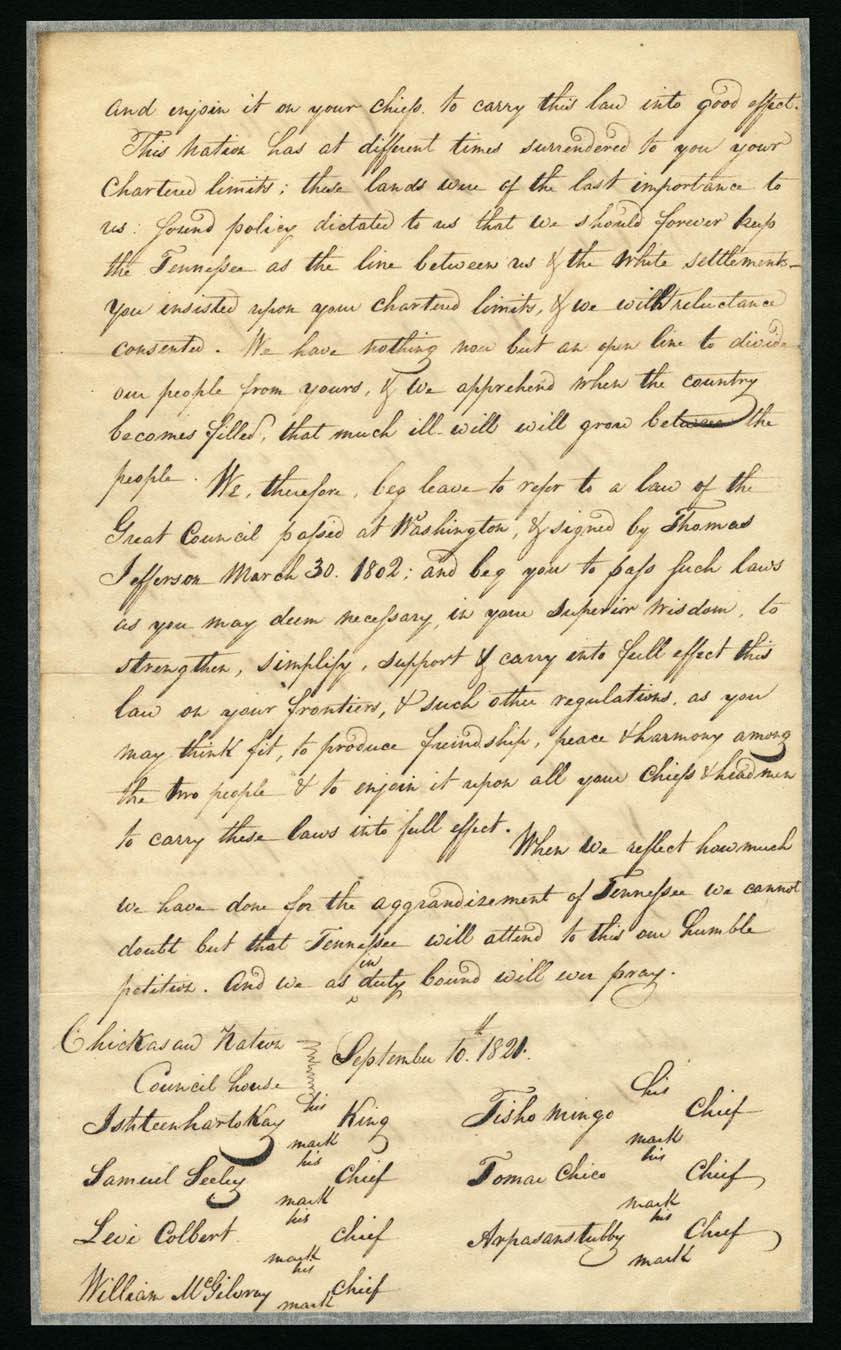 and enjoin it on your chiefs. to carry this law into good effect.
This Nation has at different times surrendered to you your
Chartered limits; these lands were of the last importance to
us: Sound policy dictated to us that we should forever keep
the Tennessee as the line between us & the White settlements-
You insisted upon your chartered limits, & we with reluctance
consented. We have nothing now but an open line to divide
our people from yours, & we apprehend when the country
becomes filled, that much ill-will will grow between the
people. We, therefore, beg leave to refer to a law of the
Great Council passed at Washington, & signed by Thomas
Jefferson March 30. 1802; and beg you to pass such laws
as you may deem necessary, in your Superior wisdom, to
strengthen, simplify, support & carry into full effect this
law on your frontiers, & such other regulations, as you
may think fit, to produce freindship, peace & harmony among
the two people & to enjoin it upon all your Chiefs & head men
to carry these laws into full effect. When we reflect how much
we have done for the aggrandizement of Tennessee we cannot
doubt but that Tennessee will attend to this our humble
petition. And we as in duty bound will ever pray.
Chickasaw Nation
Council house
September 10th. 1821.
Ishteenhartokay his mark King
Tisho Mingo his mark Chief
Samuel Seeley his mark Chief
Tomar Chico his mark Chief
Levi Colbert his mark Chief
Arpasanstubby his mark Chief
William McGilvray his mark Chief